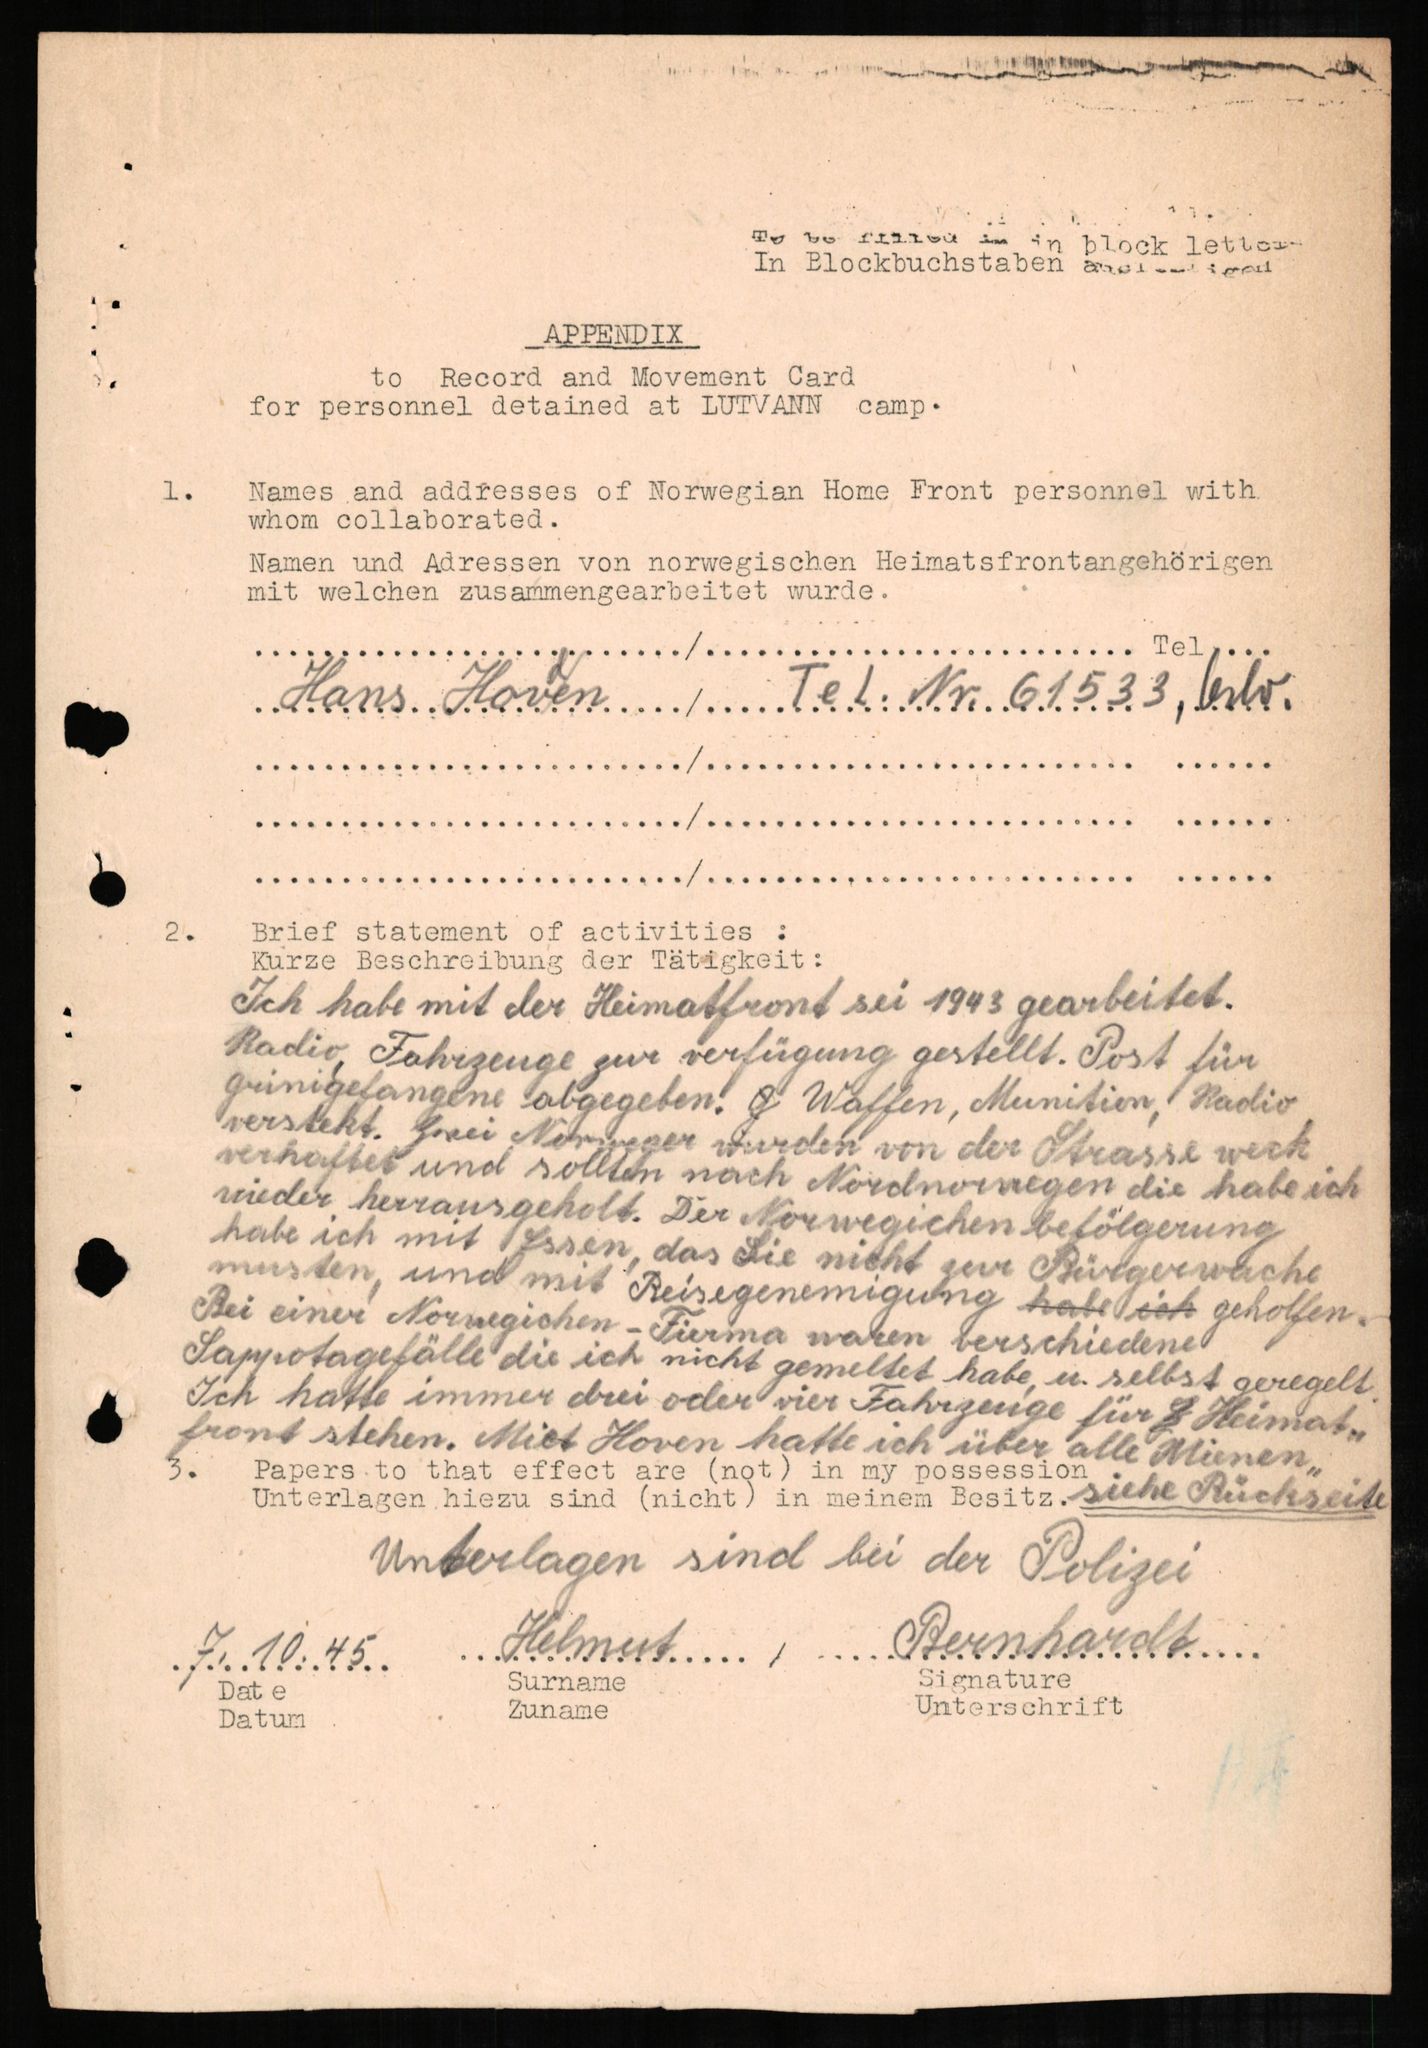 To be filled in in block letter
In Blockbuchstaben
APPENDIX
to Record and Movement Card
for personnel detained at LUTVANN camp.
1. Names and addresses of Norwegian Home Front personnel with
whom collaborated.
Namen und Adressen von norwegischen Heimatsfrontangehörigen
mit welchen zusammengearbeitet wurde.
......................../........................ Tel....
Hans Hoven / Tel. Nr. 61533,
......................../........................ ......
......................../........................ ......
......................../........................ ......
2. Brief statement of activities :
Kurze Beschreibung der Tätigkeit:
Ich habe mit der Heimatfront sei 1943 gearbeitet.
Radio, Fahrzeuge zur verfügung gestellt. Post für
grinigefangene abgegeben. Waffen, Munition, Radio
verstekt. Zwei Norweger wurden von der Strasse weck
verhaftet und sollten nach Nordnorwegen die habe ich
wieder herrausgeholt. Der Norwegichen befölgerung
habe ich mit Essen, das Sie nicht zur Bürgerwache
musten, und mit Reisegenemigung habe ich geholfen.
Bei einer Norwegichen-Fierma waren verschiedene
Sappotagefälle die ich nicht gemeltet habe, u. selbst geregelt
Ich hatte immer drei oder vier Fahrzeuge für Heimat„
front stehen. Miet Hoven hatte ich über alle Mienen„
3. Papers to that effect are (not) in my possession
Unterlagen hiezu sind (nicht) in meinem Besitz. siehe Rückseite
Unterlagen sind bei der Polizei
7. 10. 45 Helmut , Bernhardt
Date Surname Signature
Datum Zuname Unterschrift